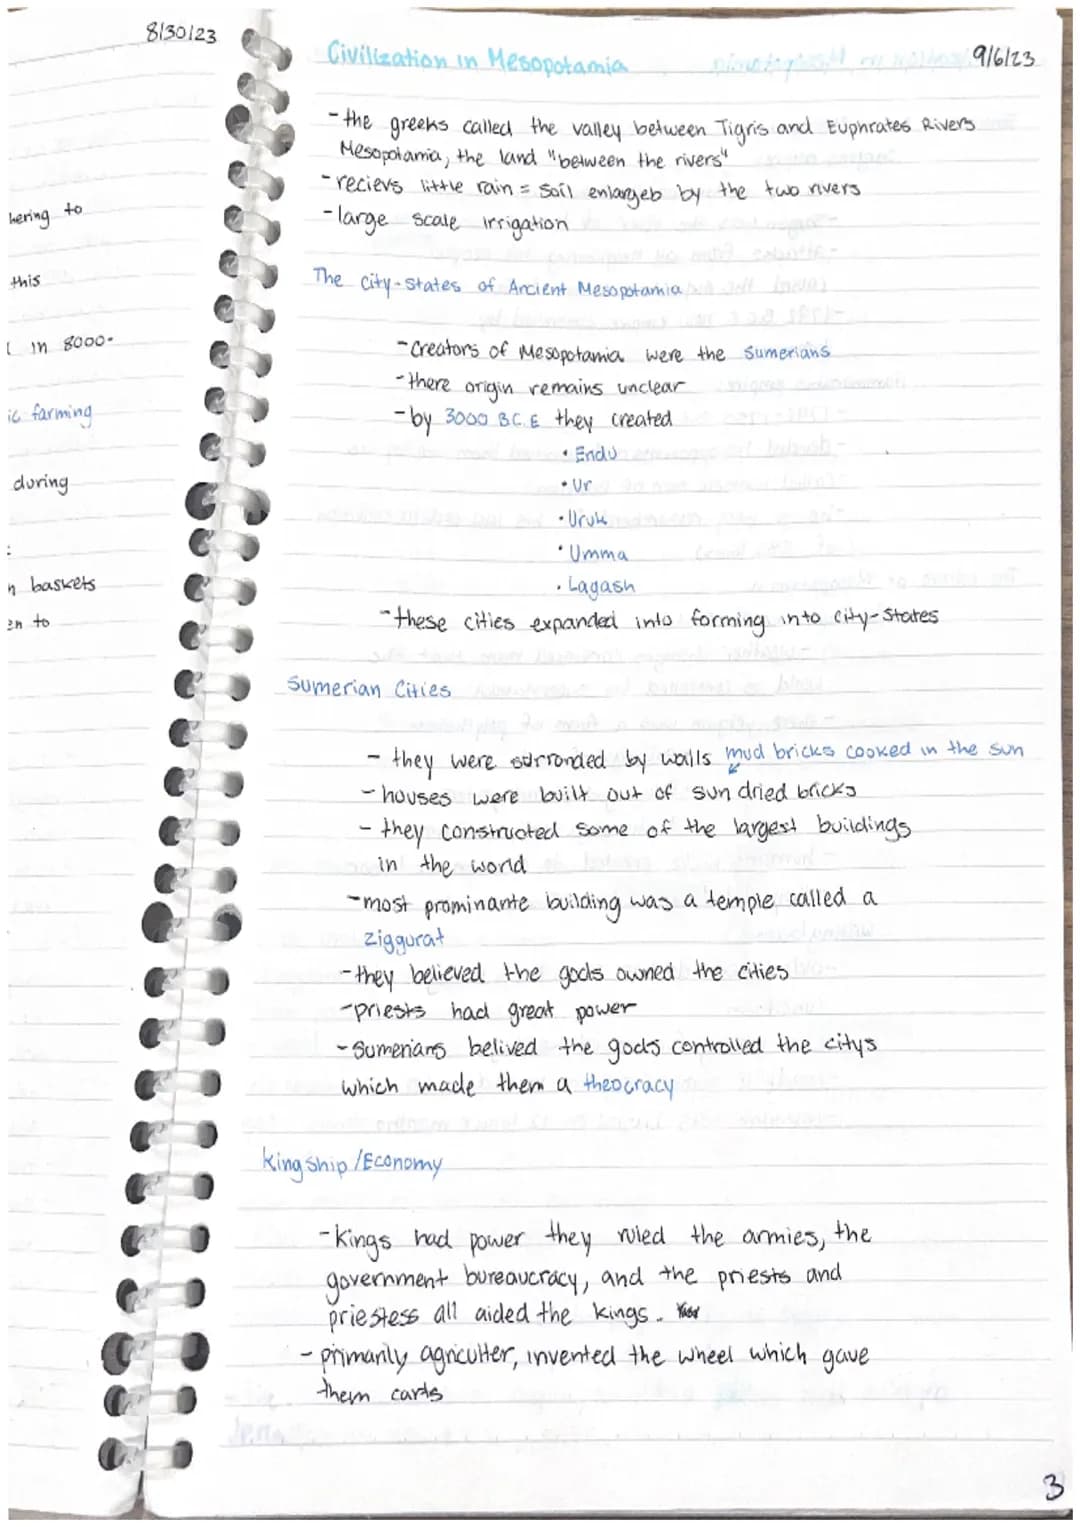 8/30/23
hering to
this
in 8000-
ic farming
during
baskets
en to
Civilization in Mesopotamia
9/6/23
- the greeks called the valley between Tigris and Euphrates Rivers
Mesopotamia, the land "between the rivers"
- recievs little rain = soil enlargeb by the two rivers
- large scale irrigation
The City-States of Ancient Mesopotamia
- Creators of Mesopotamia were the Sumerians
- there origin remains unclear
- by 3000 B.C.E they created
• Endu
• Ur
• Uruk
• Umma
• Lagash
- these cities expanded into forming into city-states
Sumerian Cities
- they were surronded by walls mud bricks cooked in the sun
- houses were built out of sun dried bricks
- they constructed some of the largest buildings
in the world
- most prominante building was a temple called a
ziggurat
- they believed the gods owned the cities
- priests had great power
- Sumerians belived the gods controlled the citys
which made them a theocracy
kingship/Economy
- kings had power they ruled the armies, the
government bureaucracy, and the priests and
priestess all aided the kings.
- primarily agriculter, invented the wheel which gave
them carts
3